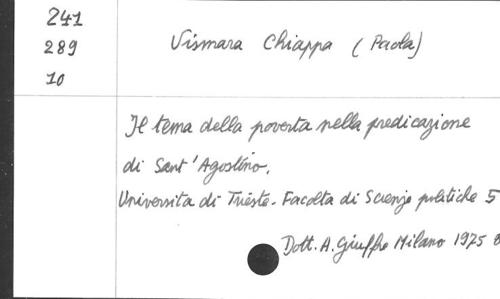 241
289
10
Vismara Chiappa (Paola)
Il tema della poverta nella predicazione
di Sant'Agostino.
Universita di Trieste. Facolta di Scienze politiche 5
Dott. A. Giuffre Milano 1975 8